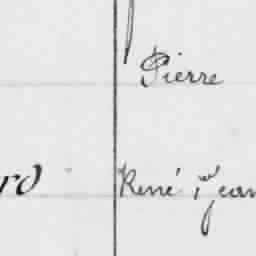 Pierre
rd René Jean